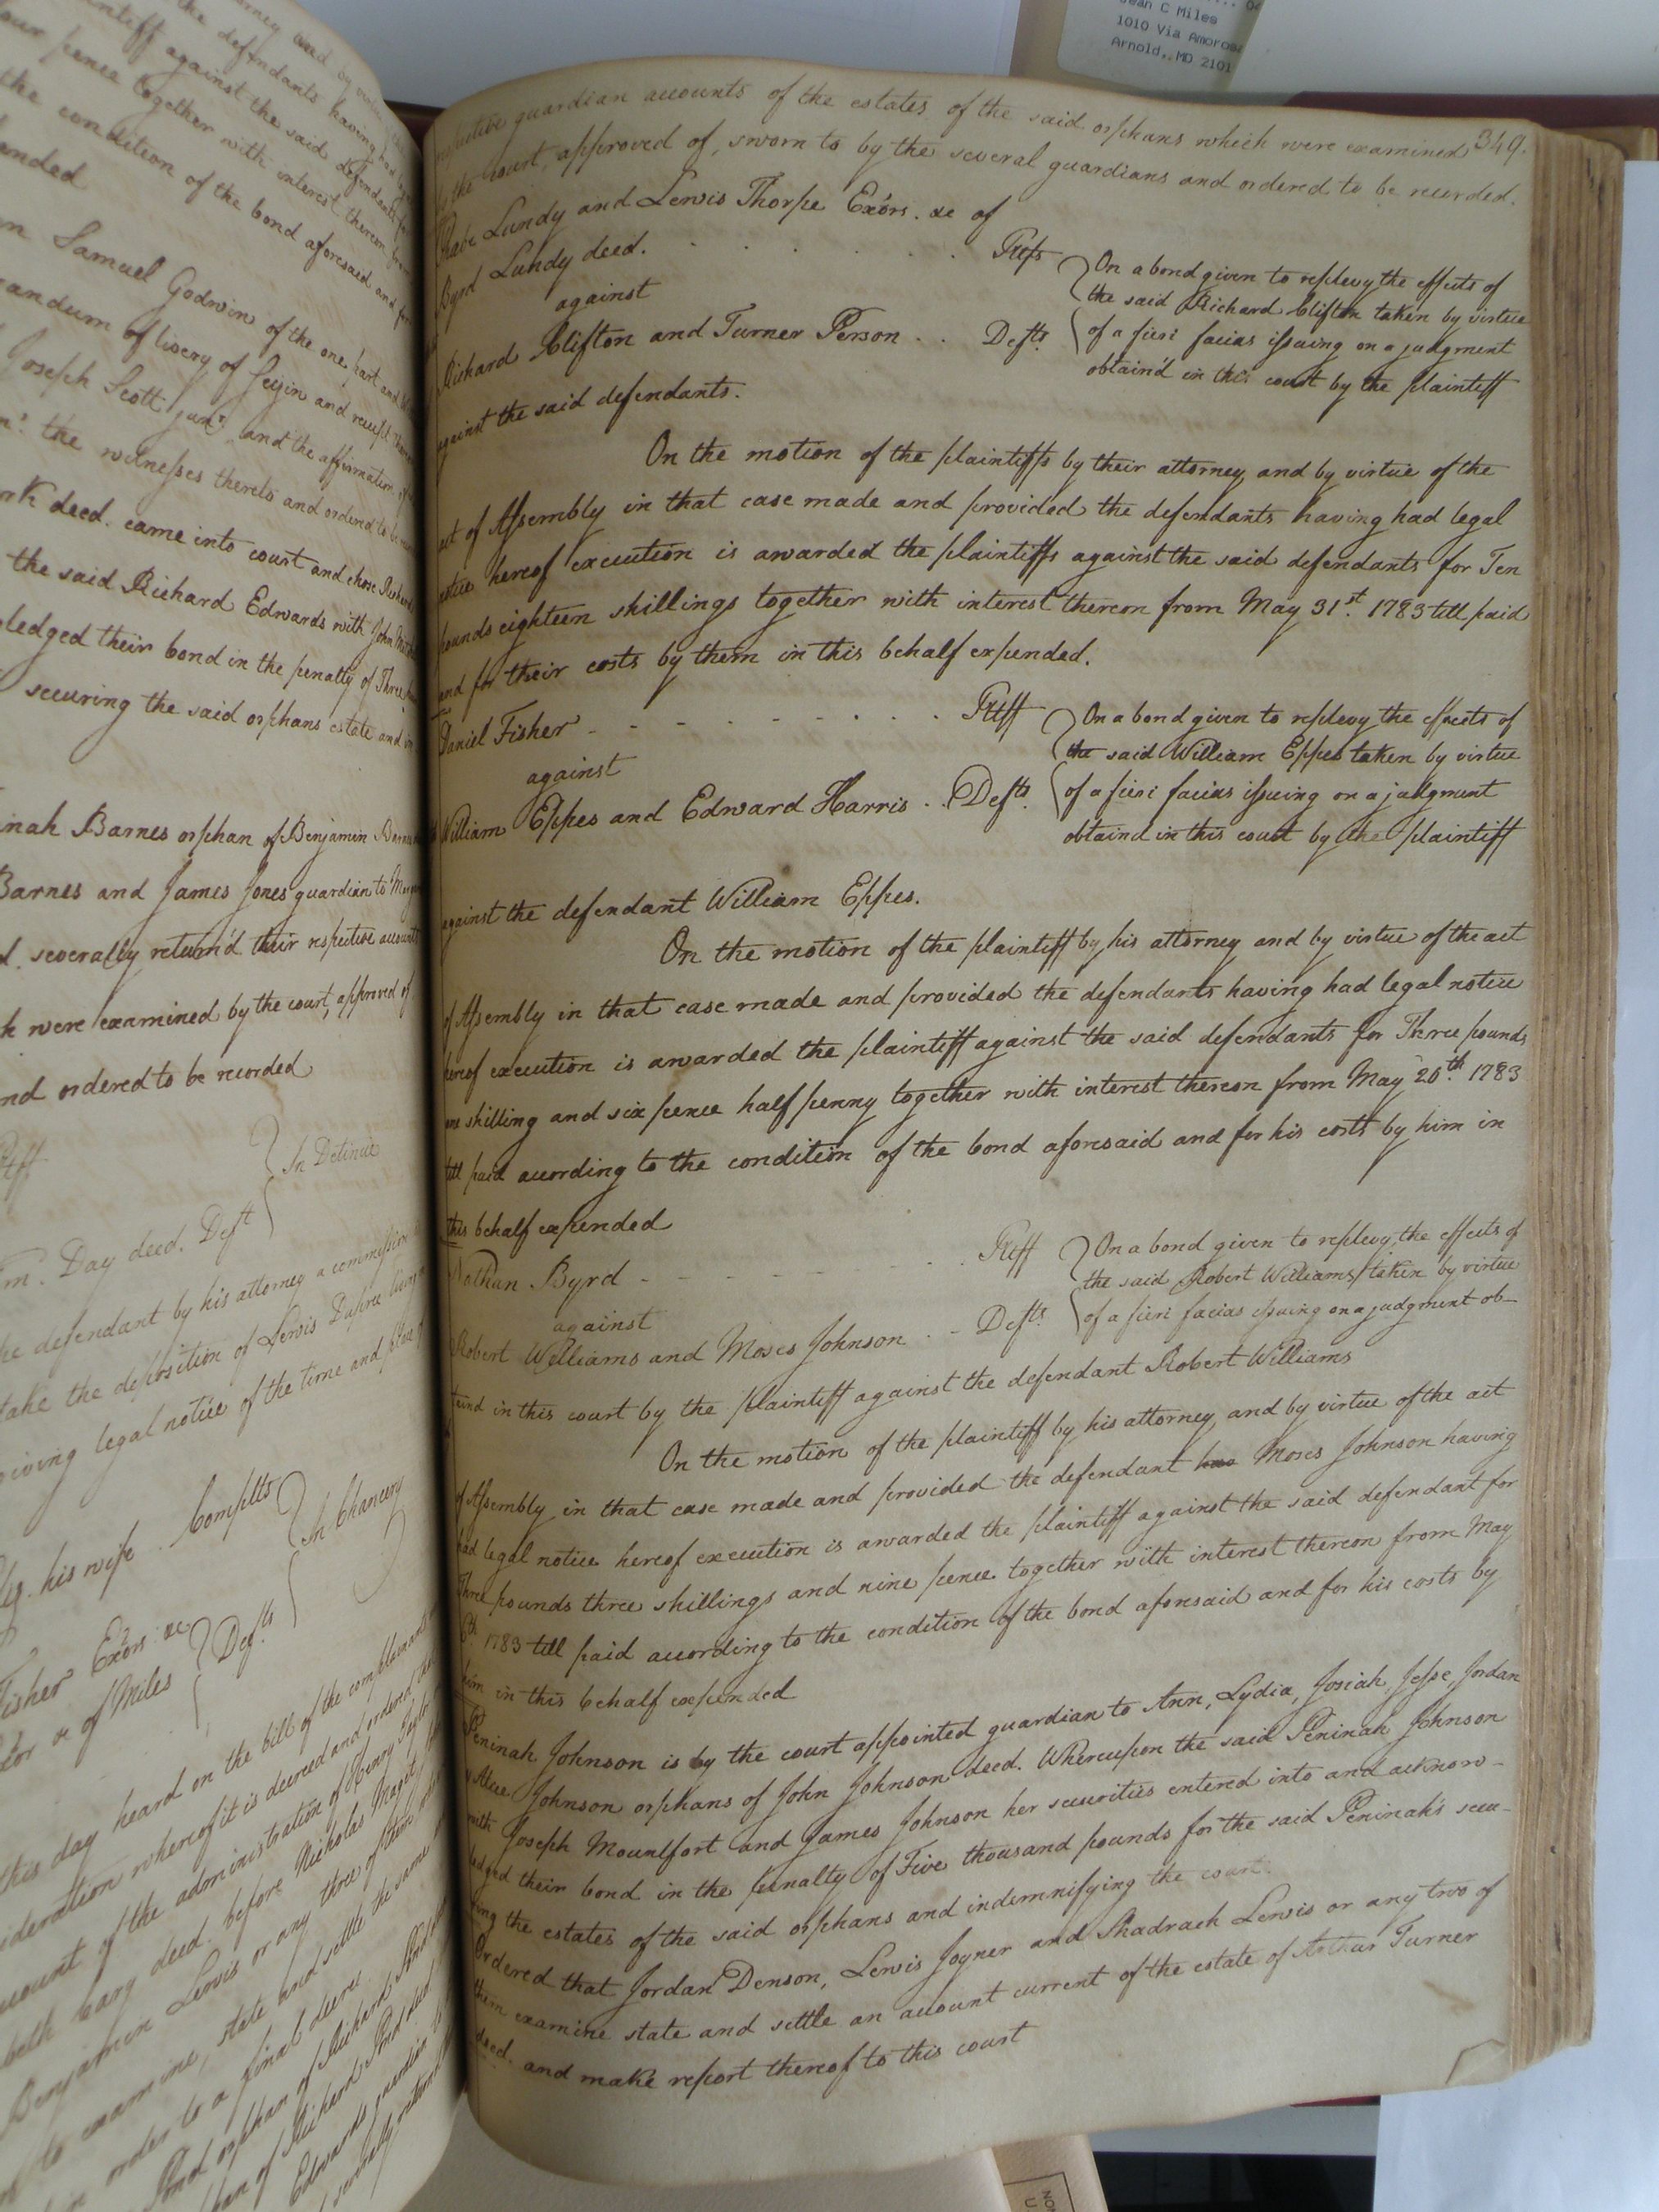 Jean C Miles
1010 Via Amorosa
Arnold, MD 2101
349.
guardian accounts of the estates of the said orphans which were examined
the court, approved of, sworn to by the several guardians and ordered to be recorded.
Lundy and Lewis Thorpe Exórs. &c of
Byrd Lundy decd. Pltfs
against
Richard Clifton and Turner Person . . Defts.
On a bond given to replevy the effects of
the said Richard Clifton taken by virtue
of a fieri facias issuing on a judgment
obtain'd in this court by the plaintiff
against the said defendants.
On the motion of the plaintiffs by their attorney and by virtue of the
act of Assembly in that case made and provided the defendants having had legal
notice hereof execution is awarded the plaintiffs against the said defendants for Ten
pounds eighteen shillings together with interest thereon from May 31st. 1783 till paid
and for their costs by them in this behalf expended.
Daniel Fisher - - - - - - Pltff
against
William Eppes and Edward Harris . . Defts.
On a bond given to replevy the effects of
the said William Eppes taken by virtue
of a fieri facias issuing on a judgment
obtaind in this court by the plaintiff
against the defendant William Eppes.
On the motion of the plaintiff by his attorney and by virtue of the act
of Assembly in that case made and provided the defendants having had legal notice
hereof execution is awarded the plaintiff against the said defendants for Three pounds
one shilling and six pence half penny together with interest thereon from May 20th. 1783
till paid according to the condition of the bond aforesaid and for his costs by him in
this behalf expended
Nathan Byrd - - - - - - Pltff
against
Robert Williams and Moses Johnson . - Defts.
On a bond given to replevy the effects of
the said Robert Williams taken by virtue
of a fieri facias issuing on a judgment ob-
taind in this court by the plaintiff against the defendant Robert Williams
On the motion of the plaintiff by his attorney and by virtue of the act
of Assembly in that case made and provided the defendant Moses Johnson having
had legal notice hereof execution is awarded the plaintiff against the said defendant for
Three pounds three shillings and nine pence together with interest thereon from May
1783 till paid according to the condition of the bond aforesaid and for his costs by
him in this behalf expended
Peninah Johnson is by the court appointed guardian to Ann, Lydia, Josiah, Jesse, Jordan
Johnson orphans of John Johnson decd. Whereupon the said Peninah Johnson
with Joseph Mountfort and James Johnson her securities entered into and acknow-
ledged their bond in the penalty of Five thousand pounds for the said Peninah's secu-
ring the estates of the said orphans and indemnifying the court.
Ordered that Jordan Denson, Lewis Joyner and Shadrach Lewis or any two of
them examine state and settle an account current of the estate of Arthur Turner
decd. and make report thereof to this court
plaintiff against the said defendants for
pence together with interest thereon from
the condition of the bond aforesaid and for
Samuel Godwin of the one part and
of livery of seizin and receipt
Joseph Scott junr. and the affirmation
the witnesses thereto and ordered to be
decd. came into court and chose Richard
the said Richard Edwards with John
their bond in the penalty of Three
securing the said orphans estate and
Barnes orphan of Benjamin Barnes
Barnes and James Jones guardian to
severally return'd their respective accounts
were examined by the court, approved of
and ordered to be recorded
In Detinue
Day decd. Deft
defendant by his attorney a commission
take the deposition of Lewis Dupree
giving legal notice of the time and place
his wife Complts
In Chancery
Fisher Exórs &c
of Miles
Defts
this day heard on the bill of the complainants
whereof it is decreed and ordered
of the administration of Henry Taylor
decd. before Nicholas
Benjamin Lewis or any three of them
to examine, state and settle the same
order to a final decree
orphan of Richard
of Richard Pond decd
Edwards guardian to